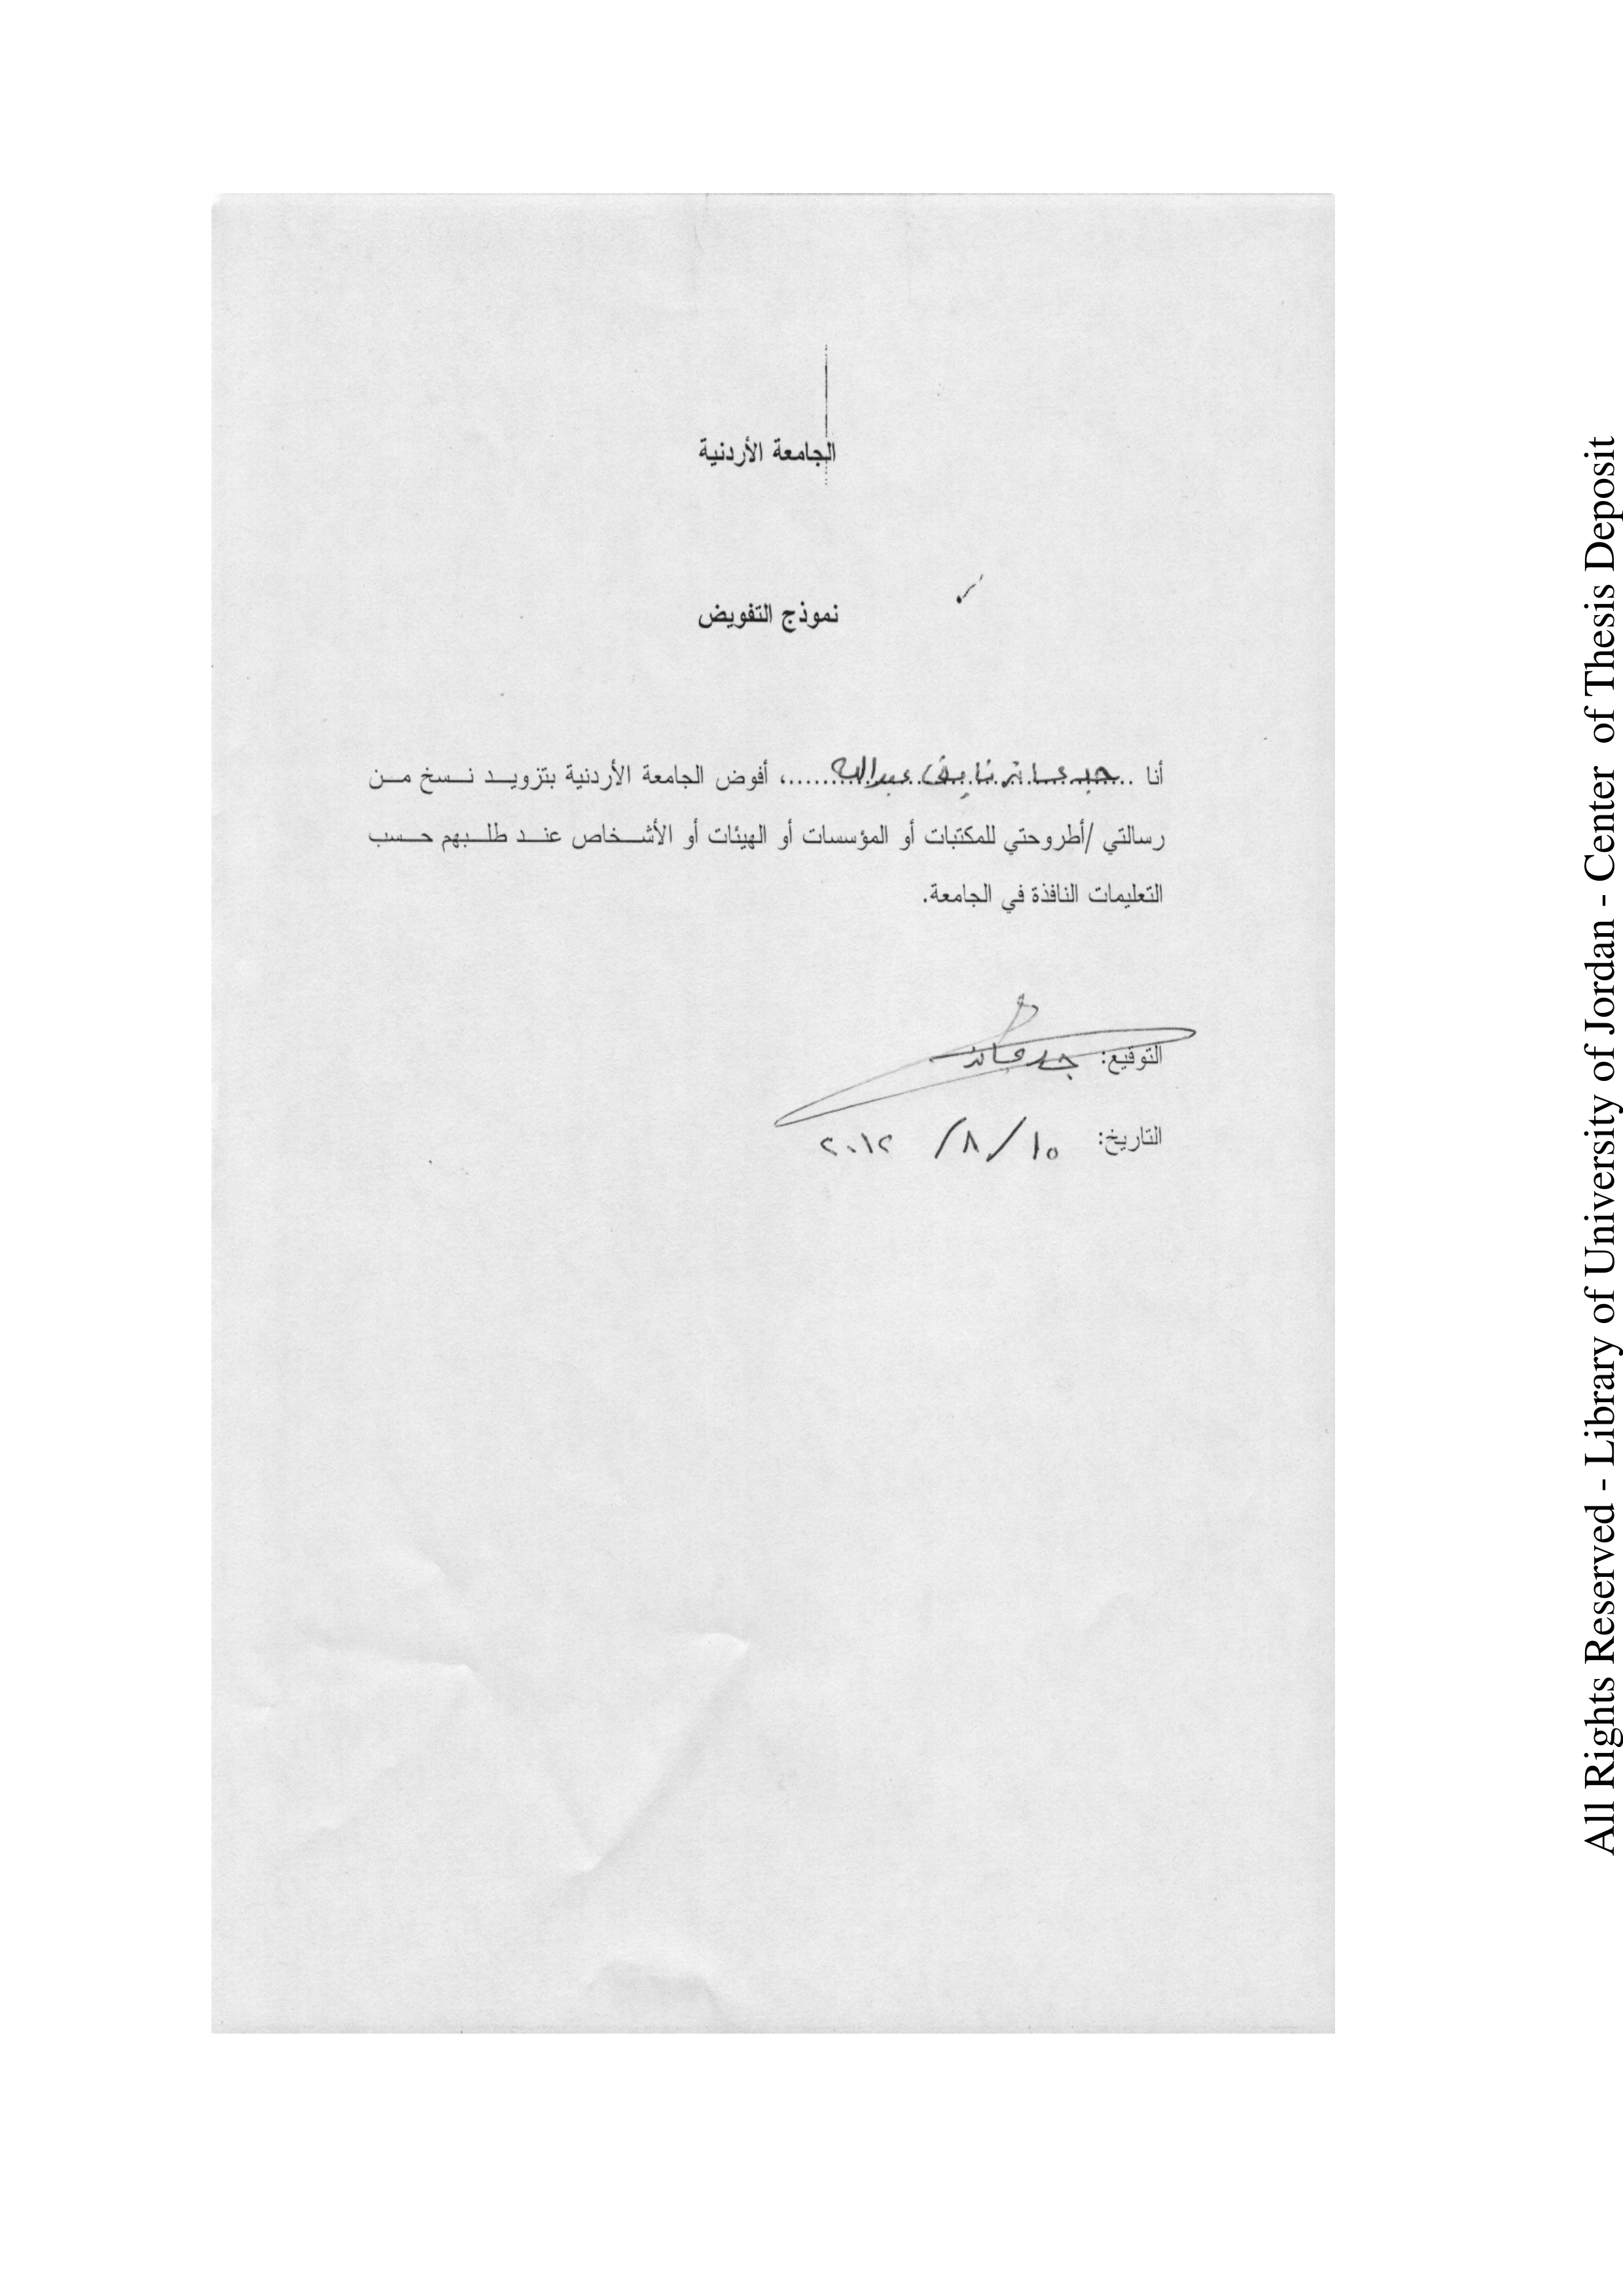 الجامعة الأردنية
نموذج التفويض
أنا ................ نايف عبدالله ......، أفوض الجامعة الأردنية بتزويد نسخ من
رسالتي /أطروحتي للمكتبات أو المؤسسات أو الهيئات أو الأشخاص عند طلبهم حسب
التعليمات النافذة في الجامعة.
التوقيع:
التاريخ: ١٥ / ٨ / ٢٠١٢
All Rights Reserved - Library of University of Jordan - Center of Thesis Deposit